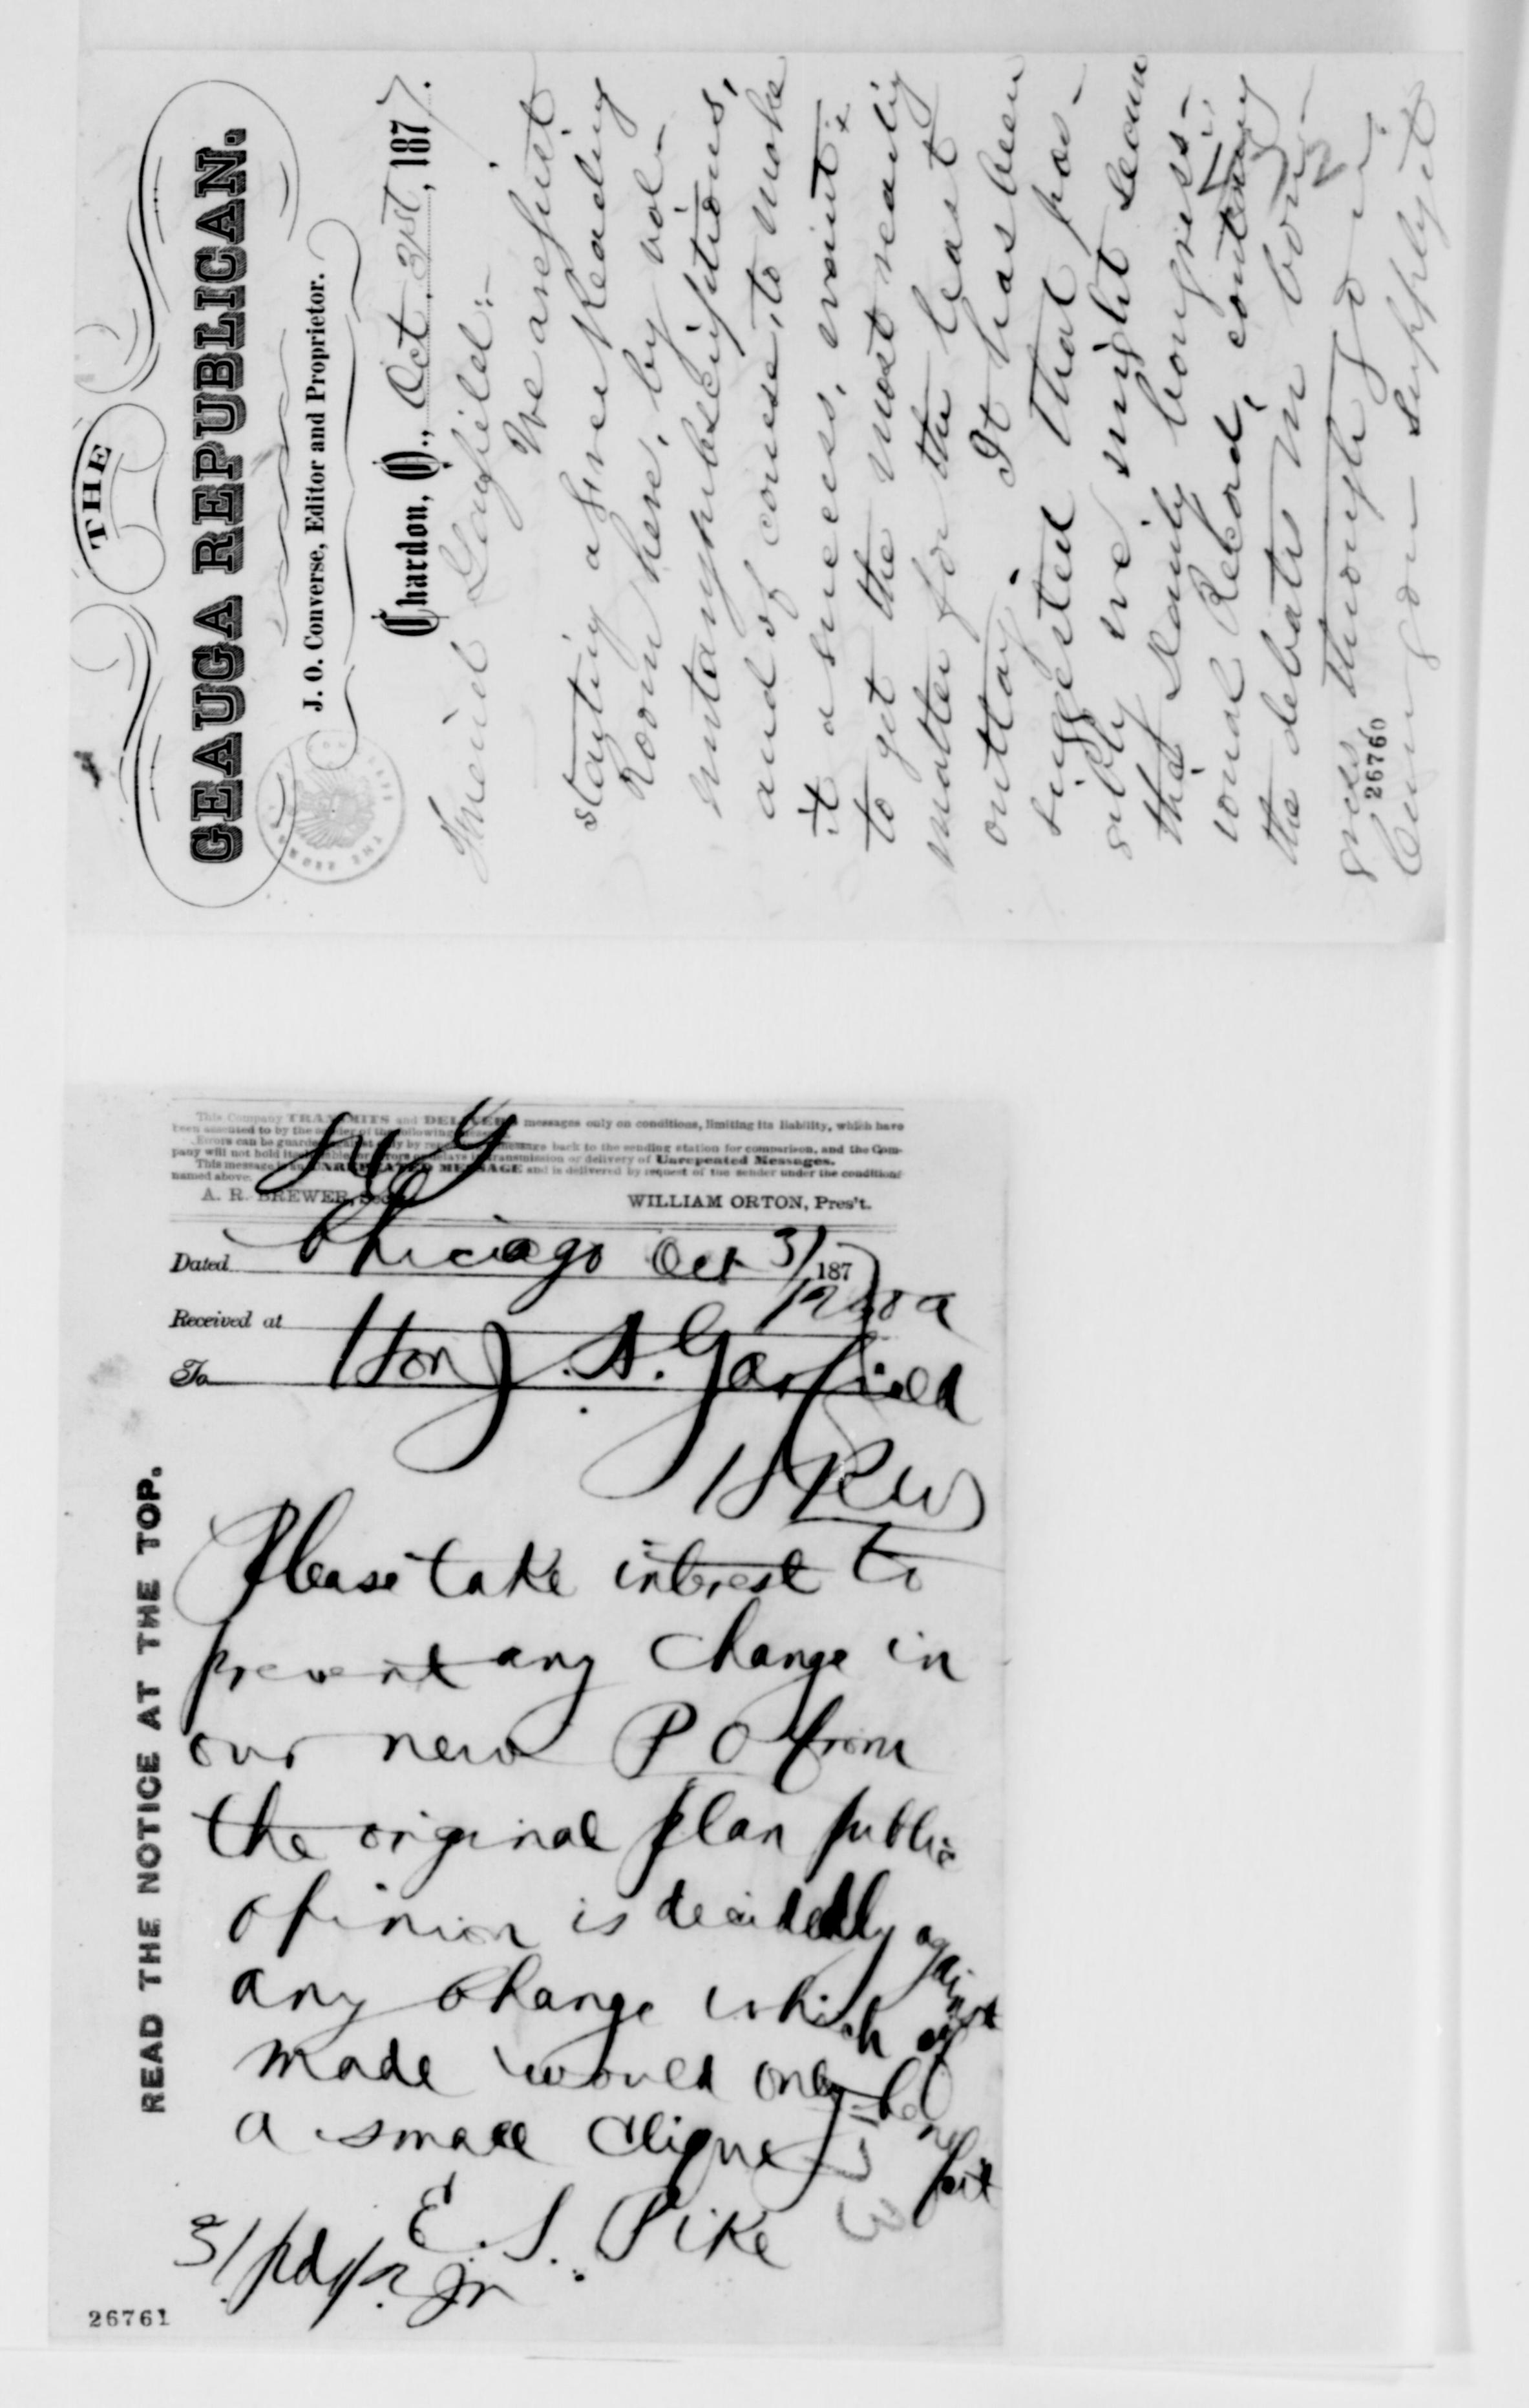 THE
GEAUGA REPUBLICAN.
J. O. Converse, Editor and Proprietor.
Chardon, O., Oct. 31st, 1877.
Friend Garfield:-
We are just
starting a Free Reading
Room here, by vol-
untary subscriptions,
and of course, to make
it a success, want
to get the most reading
matter for the least
outlay. It has been
suggested that pos-
sibly we might secure
the daily Congress-
ional Record, containing
the debates in Con-
gress, through you.
Can you supply it
26760
This Company TRANSMITS and DELIVERS messages only on conditions, limiting its liability, which have
been assented to by the sender of the following message.
Errors can be guarded against only by repeating a message back to the sending station for comparison, and the Com-
pany will not hold itself liable for errors or delays in transmission or delivery of Unrepeated Messages.
This message is an UNREPEATED MESSAGE and is delivered by request of the sender under the conditions
named above.
A. R. BREWER, Sec'y WILLIAM ORTON, Pres't.
Dated Chicago Oct 31 1877
Received at
To Hon J. A. Garfield
HRW
READ THE NOTICE AT THE TOP.
Please take interest to
prevent any change in
our new P O from
the original plan public
opinion is decidedly against
any change which if
made would only benefit
a small clique
E. S. Pike
26761